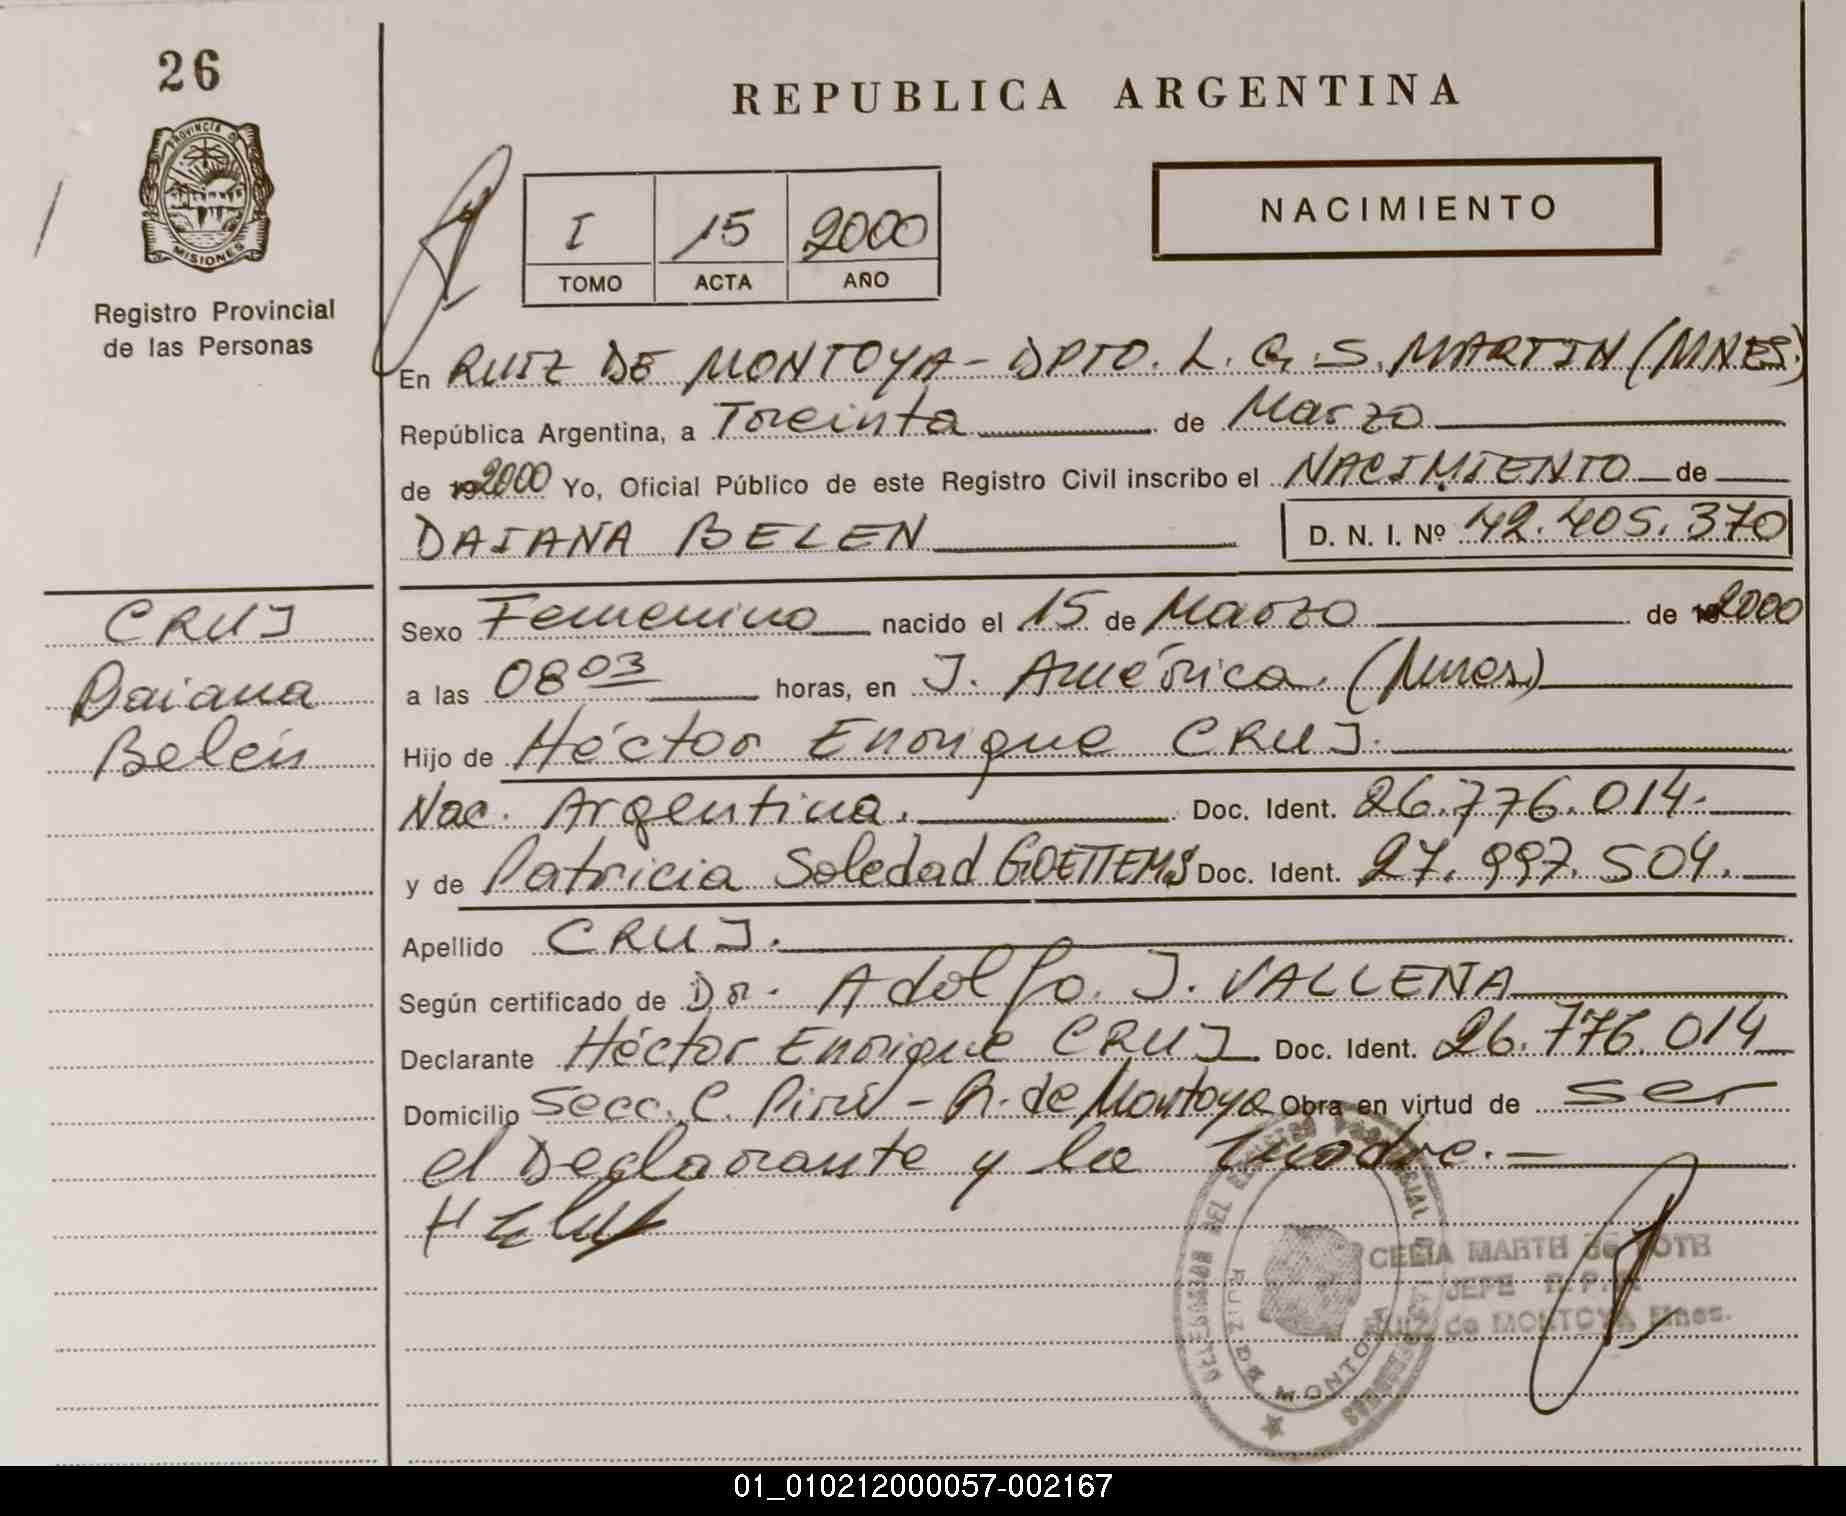 26
REPUBLICA ARGENTINA
PROVINCIA D MISIONES
Registro Provincial
de las Personas
I 15 2000
TOMO ACTA AÑO
NACIMIENTO
En RUIZ DE MONTOYA - DPTO. L. G. S. MARTIN (MNES.)
República Argentina, a Treinta de Marzo
de 192000 Yo, Oficial Público de este Registro Civil inscribo el NACIMIENTO de
DAIANA BELEN D. N. I. Nº 42.405.370
CRUJ
Daiana
Belén
Sexo Femenino nacido el 15 de Marzo de 192000
a las 08 03 horas, en J. América. (Mnes)
Hijo de Héctor Enrique CRUJ.
Nac. Argentina. Doc. Ident. 26.776.014.
y de Patricia Soledad GOETTEMS Doc. Ident. 27.997.504.
Apellido CRUJ.
Según certificado de Dr. Adolfo. J. VALLENA
Declarante Héctor Enrique CRUJ Doc. Ident. 26.776.014
Domicilio Secc. C. Pirú - R. de Montoya Obra en virtud de ser
el Declarante y la madre.
CELIA MARTH de
JEFE R.P.P.
RUIZ de MONTOYA Mnes.
RUIZ DE MONTOYA
01_010212000057-002167